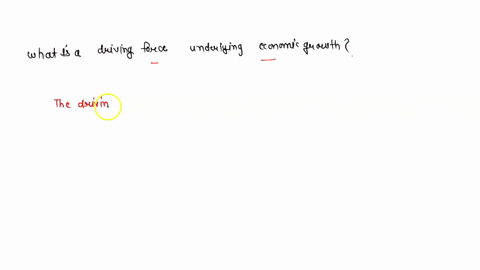 what is a driving force underlying economic growth?
The drivin